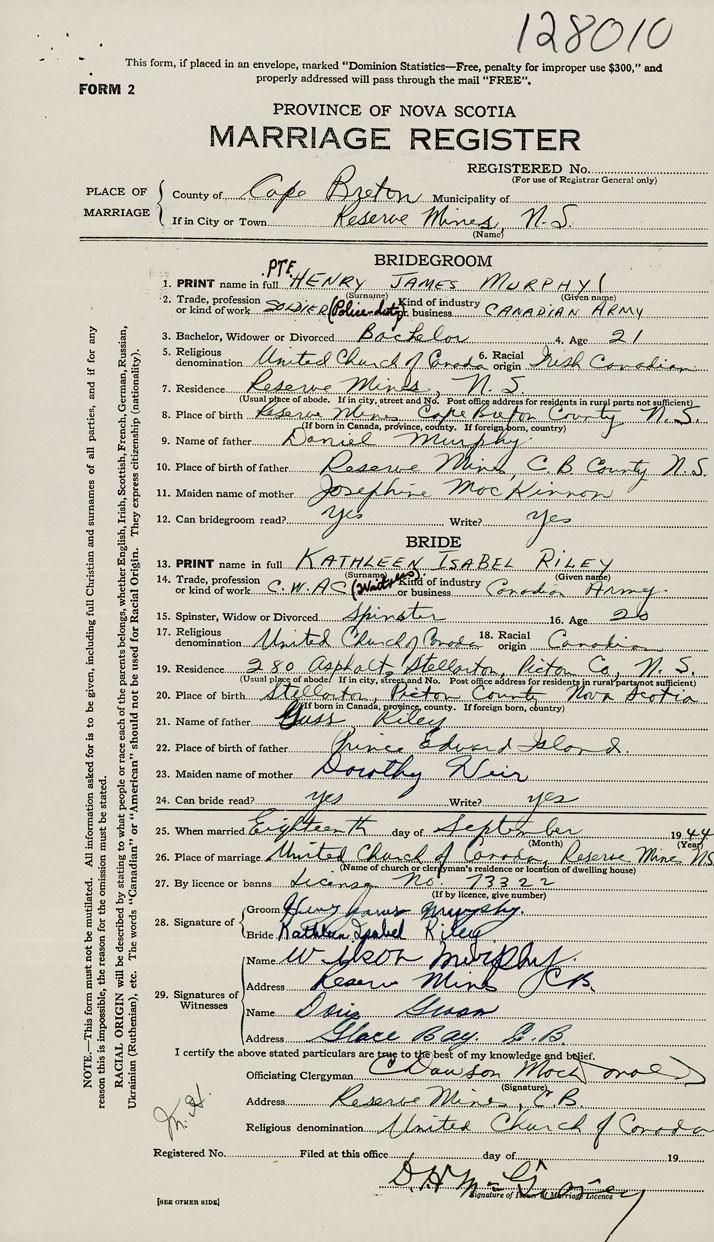 128010
This form, if placed in an envelope, marked "Dominion Statistics—Free, penalty for improper use $300," and
properly addressed will pass through the mail "FREE".
FORM 2
PROVINCE OF NOVA SCOTIA
MARRIAGE REGISTER
REGISTERED No.
(For use of Registrar General only)
PLACE OF MARRIAGE
County of Cape Breton Municipality of
If in City or Town Reserve Mines, N.S.
(Name)
BRIDEGROOM
1. PRINT name in full PTE. HENRY JAMES MURPHY
(Surname) (Given name)
2. Trade, profession or kind of work SOLDIER (Police-duty) Kind of industry or business CANADIAN ARMY
3. Bachelor, Widower or Divorced Bachelor 4. Age 21
5. Religious denomination United Church of Canada 6. Racial origin Irish Canadian
7. Residence Reserve Mines, N.S.
(Usual place of abode. If in city, street and No. Post office address for residents in rural parts not sufficient)
8. Place of birth Reserve Mines Cape Breton County N.S.
(If born in Canada, province, county. If foreign born, country)
9. Name of father Daniel Murphy
10. Place of birth of father Reserve Mines, C.B County N.S.
11. Maiden name of mother Josephine MacKinnon
12. Can bridegroom read? Yes Write? Yes
BRIDE
13. PRINT name in full KATHLEEN ISABEL RILEY
(Surname) (Given name)
14. Trade, profession or kind of work C.W.A.C (Waitress) Kind of industry or business Canadian Army
15. Spinster, Widow or Divorced Spinster 16. Age 20
17. Religious denomination United Church of Canada 18. Racial origin Canadian
19. Residence 280 Asphalt, Stellarton, Picton Co, N.S.
(Usual place of abode. If in city, street and No. Post office address for residents in rural parts not sufficient)
20. Place of birth Stellarton, Picton County Nova Scotia
(If born in Canada, province, county. If foreign born, country)
21. Name of father Guss Riley
22. Place of birth of father Prince Edward Island.
23. Maiden name of mother Dorothy Weir
24. Can bride read? yes Write? yes
25. When married Eighteenth day of September 1944
(Month) (Year)
26. Place of marriage United Church of Canada, Reserve Mines NS
(Name of church or clergyman's residence or location of dwelling house)
27. By licence or banns License No. 73322
(If by licence, give number)
28. Signature of
Groom Henry James Murphy.
Bride Kathleen Isabel Riley
29. Signatures of Witnesses
Name Wilson Murphy.
Address Reserve Mines CB.
Name Doris
Address Glace Bay. C.B.
I certify the above stated particulars are true to the best of my knowledge and belief.
Officiating Clergyman C Dawson MacDonald
(Signature)
Address Reserve Mines, C.B.
Religious denomination United Church of Canada
Registered No. Filed at this office day of 19
D.H.
Signature of Issuer of Marriage Licence
[SEE OTHER SIDE]
NOTE.—This form must not be mutilated. All information asked for is to be given, including full Christian and surnames of all parties, and if for any
reason this is impossible, the reason for the omission must be stated.
RACIAL ORIGIN will be described by stating to what people or race each of the parents belongs, whether English, Irish, Scottish, French, German, Russian,
Ukrainian (Ruthenian), etc. The words "Canadian" or "American" should not be used for Racial Origin. They express citizenship (nationality).